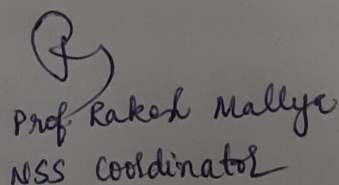 Prof. Rakesh Mallya
NSS Coordinator